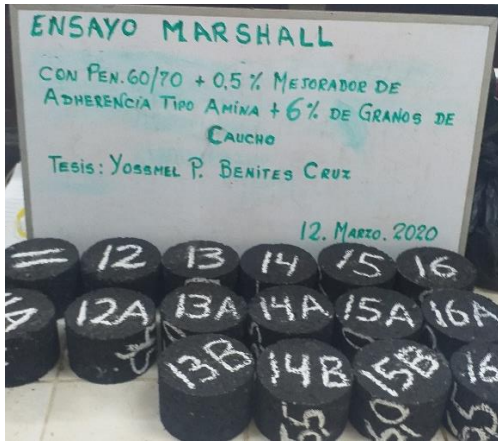 ENSAYO MARSHALL
CON PEN.60/70 + 0,5% MEJORADOR DE
ADHERENCIA TIPO AMINA + 6% DE GRANOS DE
CAUCHO
TESIS: YOSSMEL P. BENITES CRUZ
12. MARZO. 2020
12 13 14 15 16
12A 13A 14A 15A 16A
13B 14B 15B 16